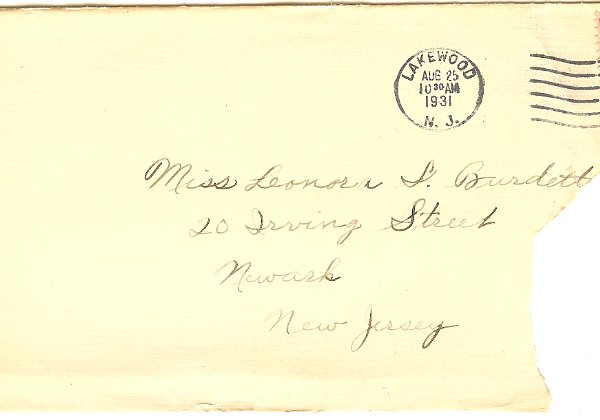 LAKEWOOD
AUG 25
10 30 AM
1931
N. J.
Miss Leonora S. Burdett
20 Irving Street
Newark
New Jersey